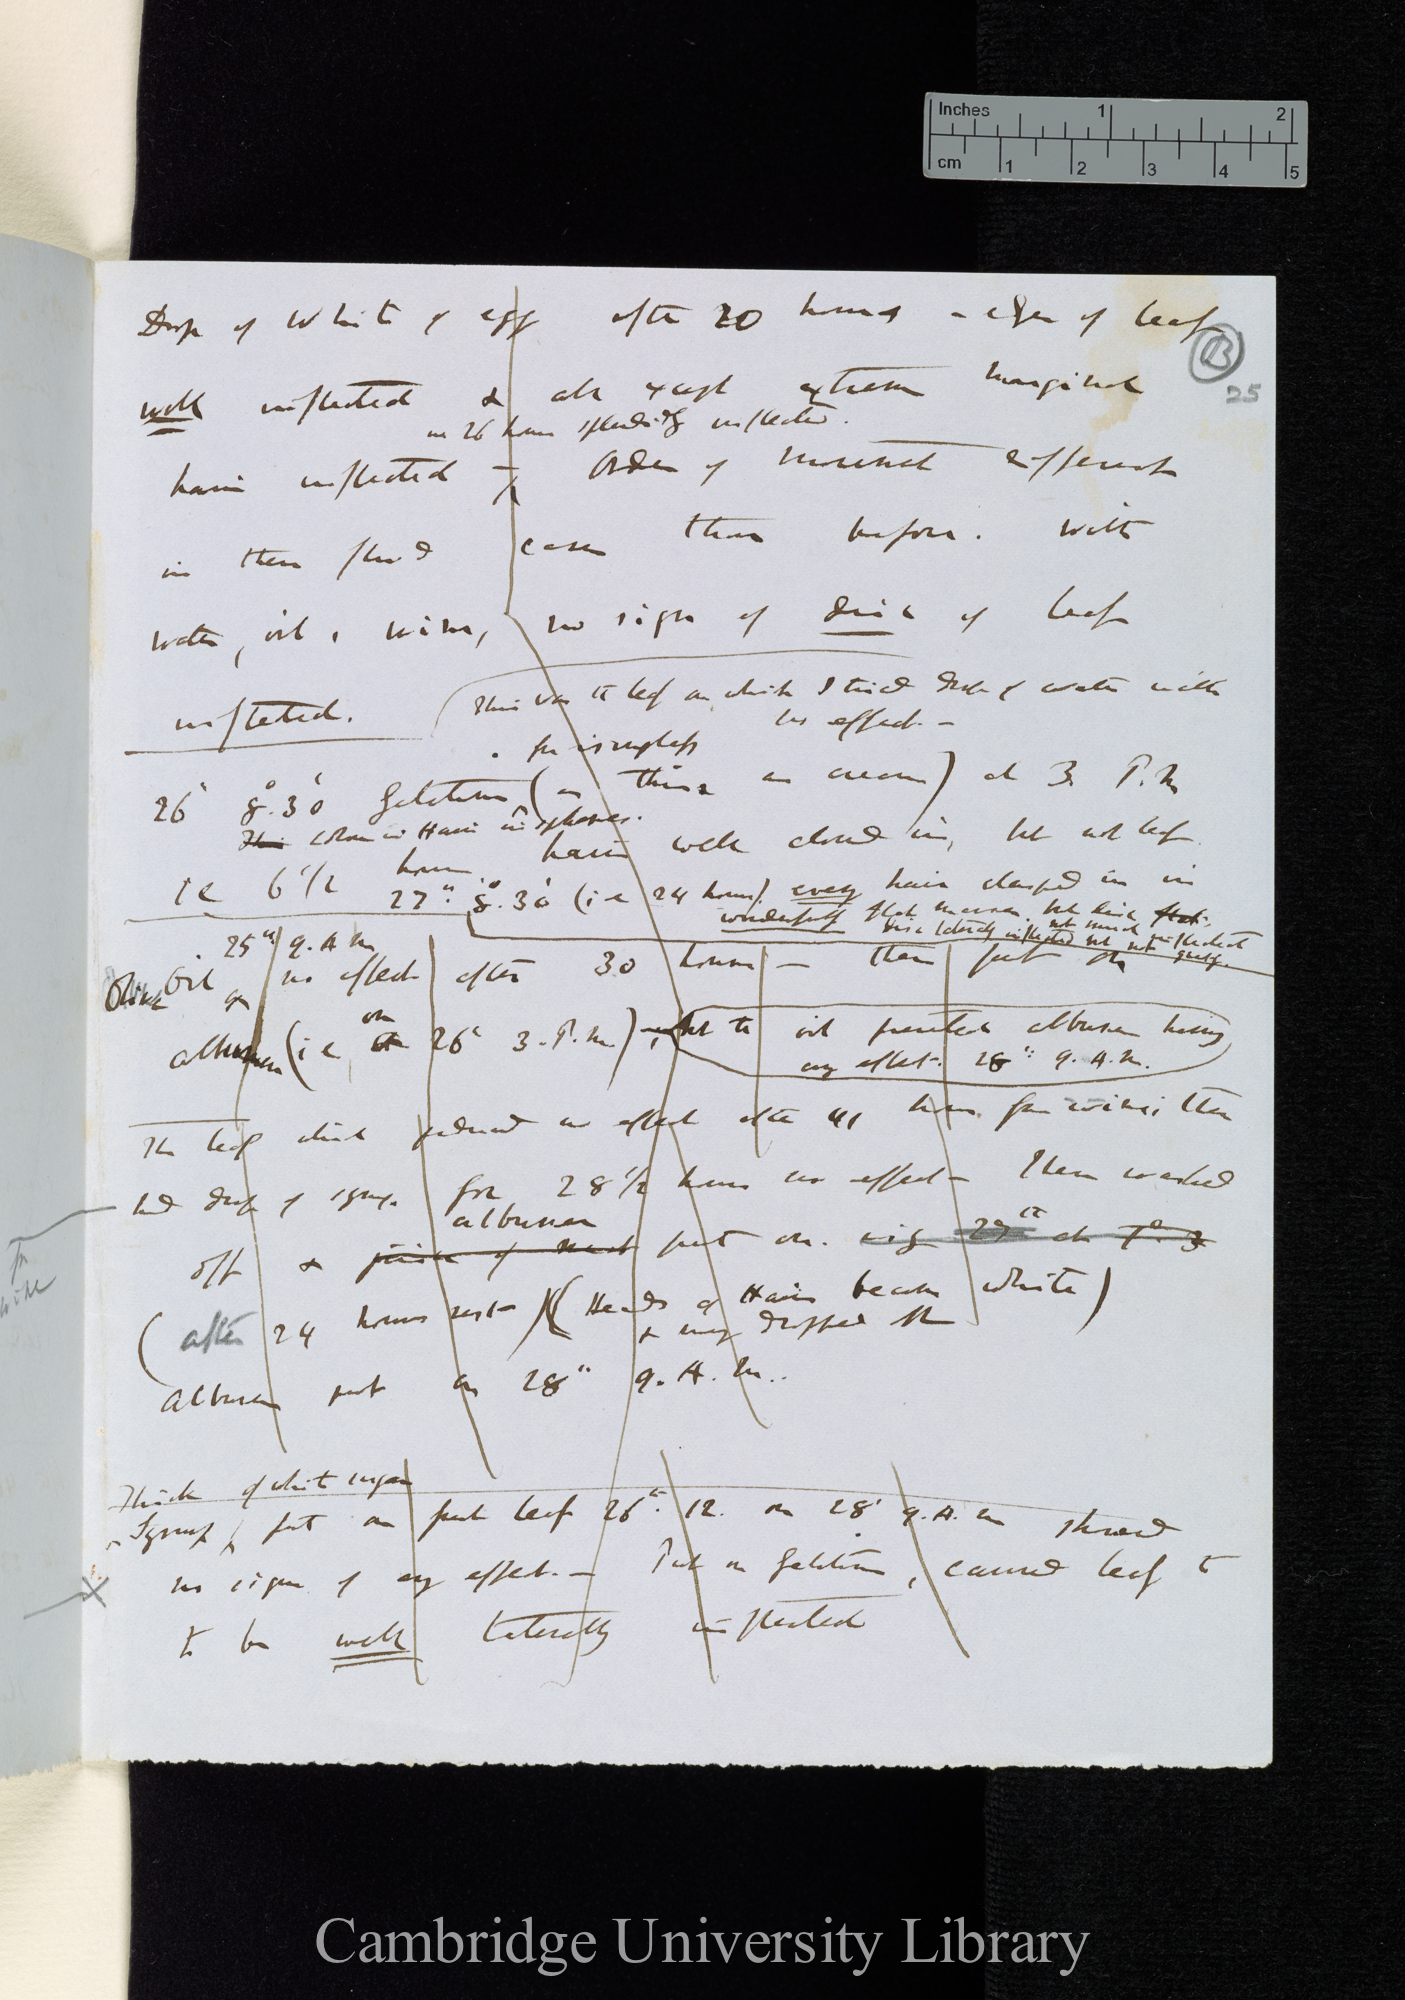 Inches 1 2
cm 1 2 3 4 5
Drop of White of egg after 20 hours – edges of leaf
(13)
25
well inflected & all except extreme marginal
in 26 hours splendidly inflected.
hairs inflected – Order of movement different
in these fluid cases than before. With
water, oil, wine, no sign of disc of leaf
inflected.
This was the leaf on which I tried drop of water with
no effect. –
for isinglass
26th 8°.30' Gelatine (as thick as cream) at 3. P.m
This colour in Hairs in spheres.
hairs well closed in, but not leaf
ie 6 1/2 hours
27th 8°.30' (i e 24 hours) every hair clasped in in
wonderfully flat manner. but disc flat.
not much inflected
disc laterally inflected but not
25th 9. A m
Olive Oil no effect after 30 hours – then put on
albumen (i e on 26th 3. P.m) – but the oil prevented albumen having
any effect. 28th 9. A.m.
The leaf which produced no effect after 41 hours from wine; then
had drop of syrup. for 28 1/2 hours no effect – Then washed
albumen
off & juice of meat put on. 27th at 1°. 3
(after 24 hours rest) (Heads of Hairs became white)
& many dropped off
Albumen put on 28th 9. A. m..
Thick of white sugar
Syrup, put on fresh leaf 26th. 12. on 28th 9. A. m showed
no sign of any effect. – Put on Gelatine, caused leaf to
to be well laterally inflected
for
wine
Cambridge University Library